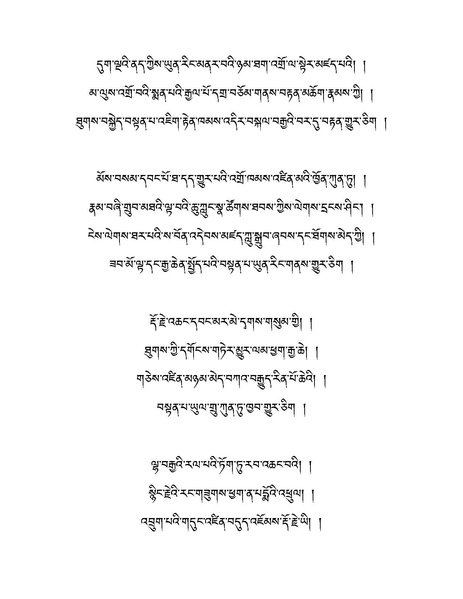 དུག་ལྔའི་ནད་ཀྱིས་ཡུན་རིང་མནར་བའི་ཉམ་ཐག་འགྲོ་ལ་སྟེར་མཛད་པའི། །
མ་ལུས་འགྲོ་བའི་སྨན་པའི་རྒྱལ་པོ་དགྲ་བཅོམ་གནས་བརྟན་མཆོག་རྣམས་ཀྱི། །
ཐུགས་བསྐྱེད་བསྟན་པ་འཇིག་རྟེན་ཁམས་འདིར་བསྐལ་བརྒྱའི་བར་དུ་བརྟན་གྱུར་ཅིག །
མོས་བསམ་དབང་པོ་ཐ་དད་གྱུར་པའི་འགྲོ་ཁམས་འཛིན་མའི་ཁྱོན་ཀུན་ཏུ། །
རྣམ་བཞི་གྲུབ་མཐའི་ལྟ་བའི་ཆུ་ཀླུང་སྣ་ཚོགས་ཐབས་ཀྱིས་ལེགས་དྲངས་ཤིང༌། །
ངེས་ལེགས་ཐར་པའི་ས་བོན་འདེབས་མཛད་ཀླུ་སྒྲུབ་ཞབས་དང་ཐོགས་མེད་ཀྱི། །
ཟབ་མོ་ལྟ་དང་རྒྱ་ཆེན་སྤྱོད་པའི་བསྟན་པ་ཡུན་རིང་གནས་གྱུར་ཅིག །
རྡོ་རྗེ་འཆང་དབང་མར་མེ་དྭགས་གསུམ་གྱི། །
ཐུགས་ཀྱི་དགོངས་གཏེར་མྱུར་ལམ་ཕྱག་རྒྱ་ཆེ། །
གཅེས་འཛིན་མཉམ་མེད་བཀའ་བརྒྱུད་རིན་པོ་ཆེའི། །
བསྟན་པ་ཡུལ་གྲུ་ཀུན་ཏུ་ཁྱབ་གྱུར་ཅིག །
ལྷ་བརྒྱའི་རལ་པའི་ཏོག་ཏུ་རབ་འཆང་བའི། །
སྙིང་རྗེའི་རང་གཟུགས་ཕྱག་ན་པདྨོའི་འཕྲུལ། །
འབྲུག་པའི་གདུང་འཛིན་བདུད་འཇོམས་རྡོ་རྗེ་ཡི། །